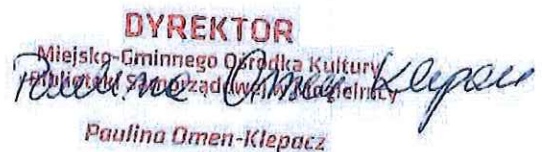 DYREKTOR
Miejsko-Gminnego Ośrodka Kultury
Biblioteki Samorządowej w
Paulina Omen-Klepacz
Paulina Omen-Klepacz